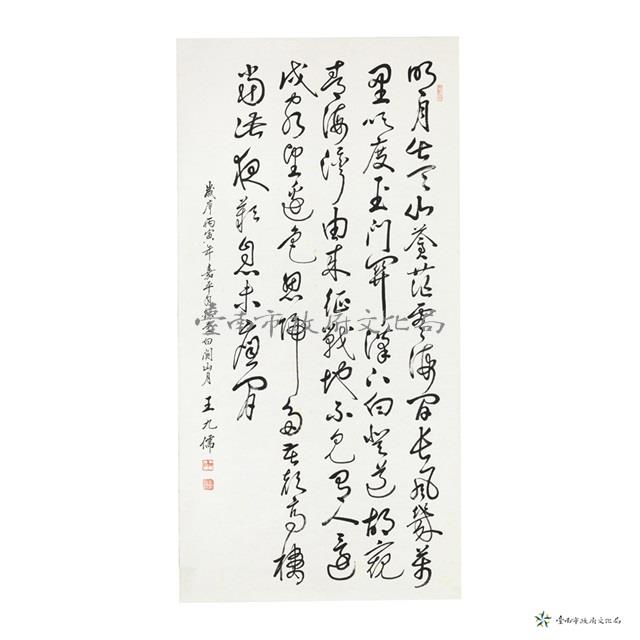 明月出天山蒼茫雲海間長風幾萬
里吹度玉門關漢下白登道胡窺
青海灣由來征戰地不見有人還
戍客望邊色思歸多苦顏高樓
當此夜歎息未應閒
歲序丙寅年嘉平月李白關山月 王九儒
臺南市政府文化局
臺南市政府文化局